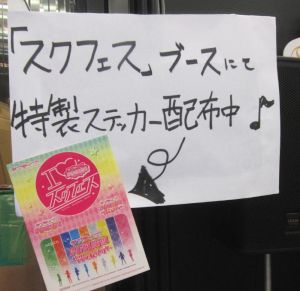 「スクフェス」ブースにて
特製ステッカー配布中♪
I
スクフェス